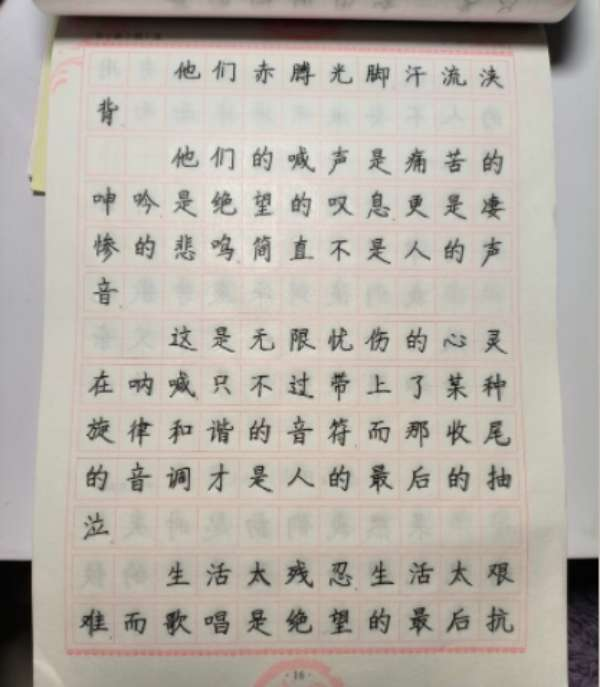 他们赤膊光脚汗流浃
背
他们的喊声是痛苦的
呻吟是绝望的叹息更是凄
惨的悲鸣简直不是人的声
音
这是无限忧伤的心灵
在呐喊只不过带上了某种
旋律和谐的音符而那收尾
的音调才是人的最后的抽
泣
生活太残忍生活太艰
难而歌唱是绝望的最后抗
·16·